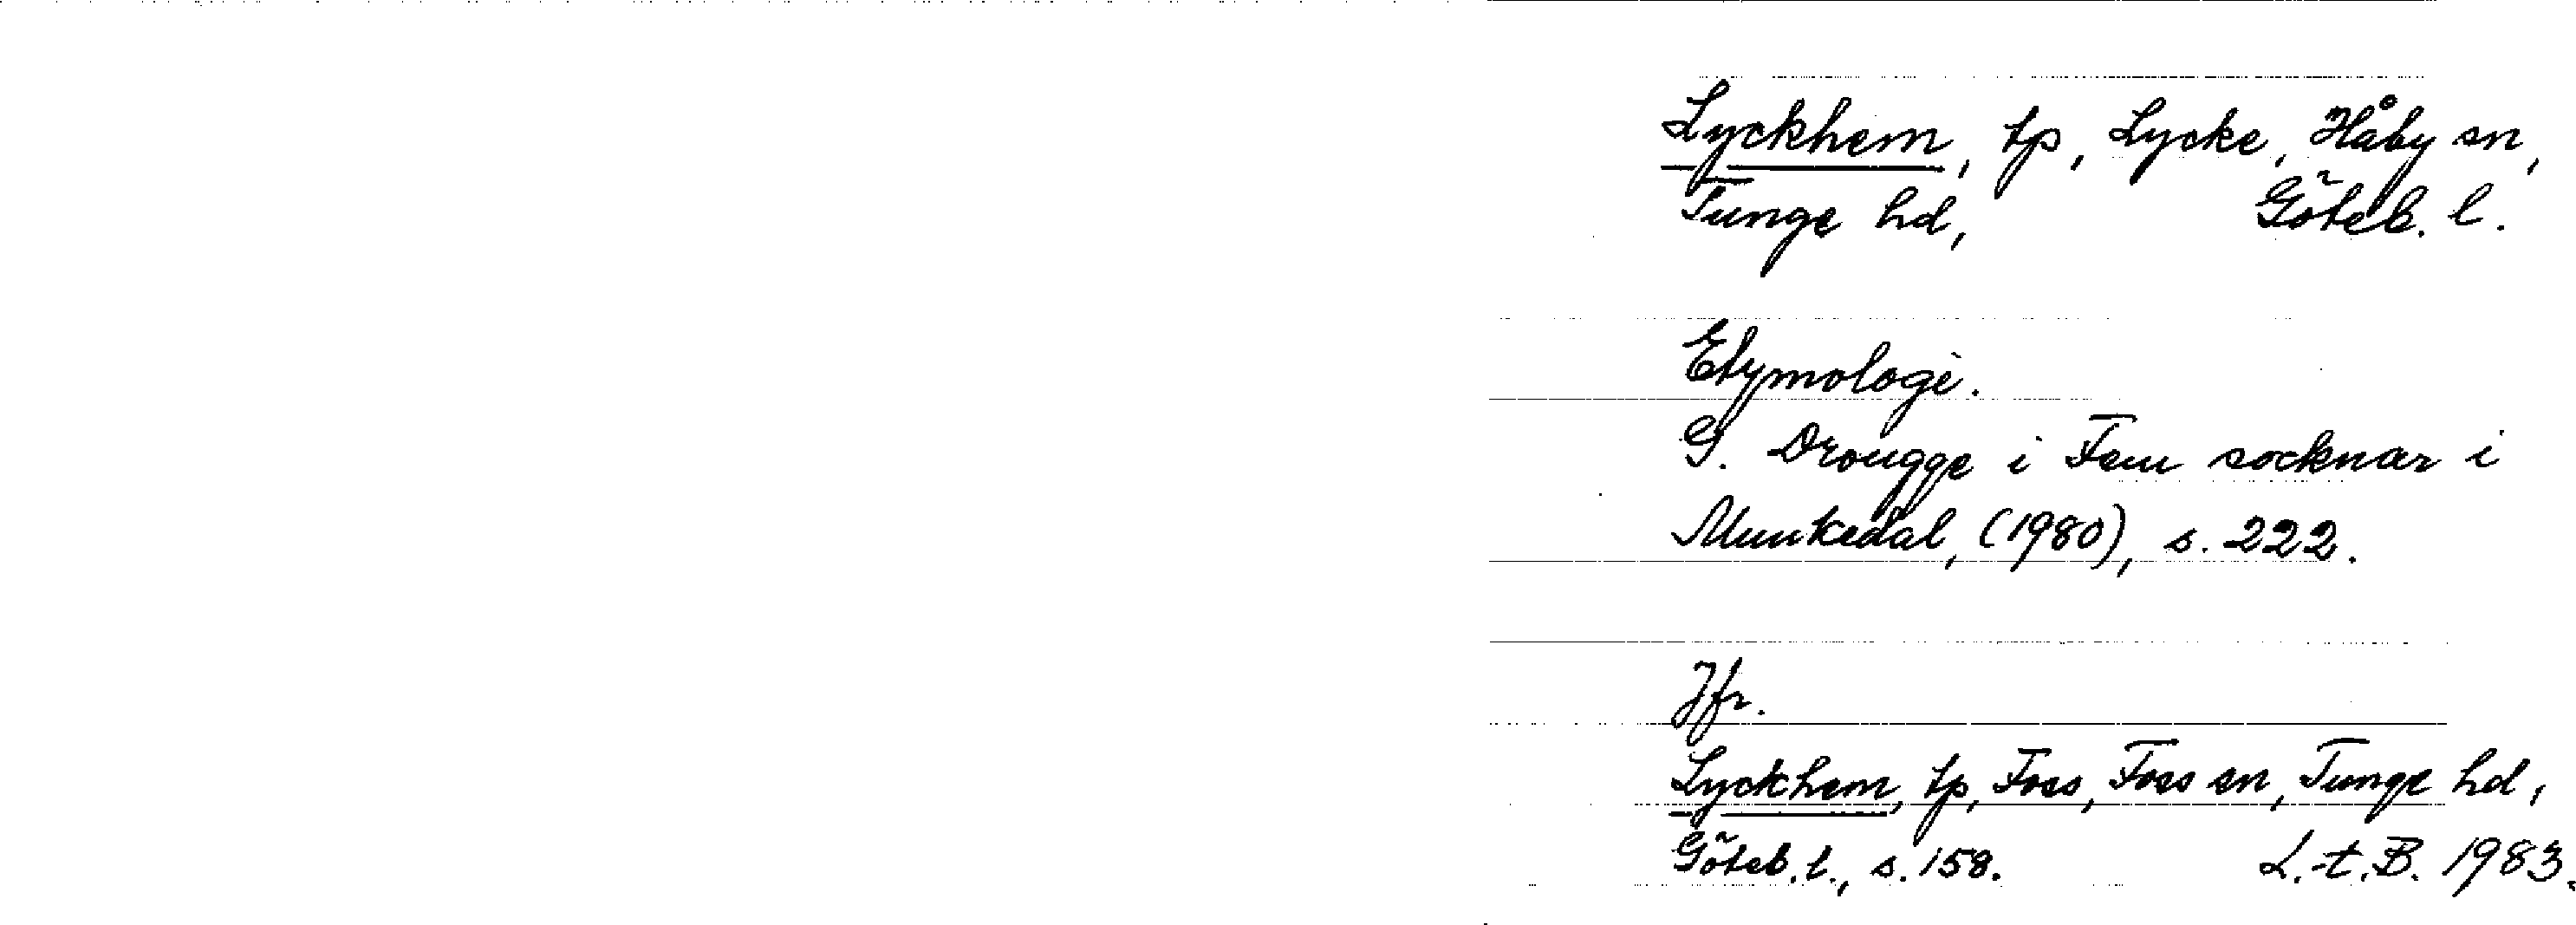 Lyckhem, tp, Lycke, Håby sn,
Tunge hd, Göteb. l.
Etymologi.
G. Drougge i Fem socknar i
Munkedal, (1980), s. 222.
Jfr.
Lyckhem, tp, Foss, Foss sn, Tunge hd,
Göteb. l., s. 158. L. t. B. 1983.